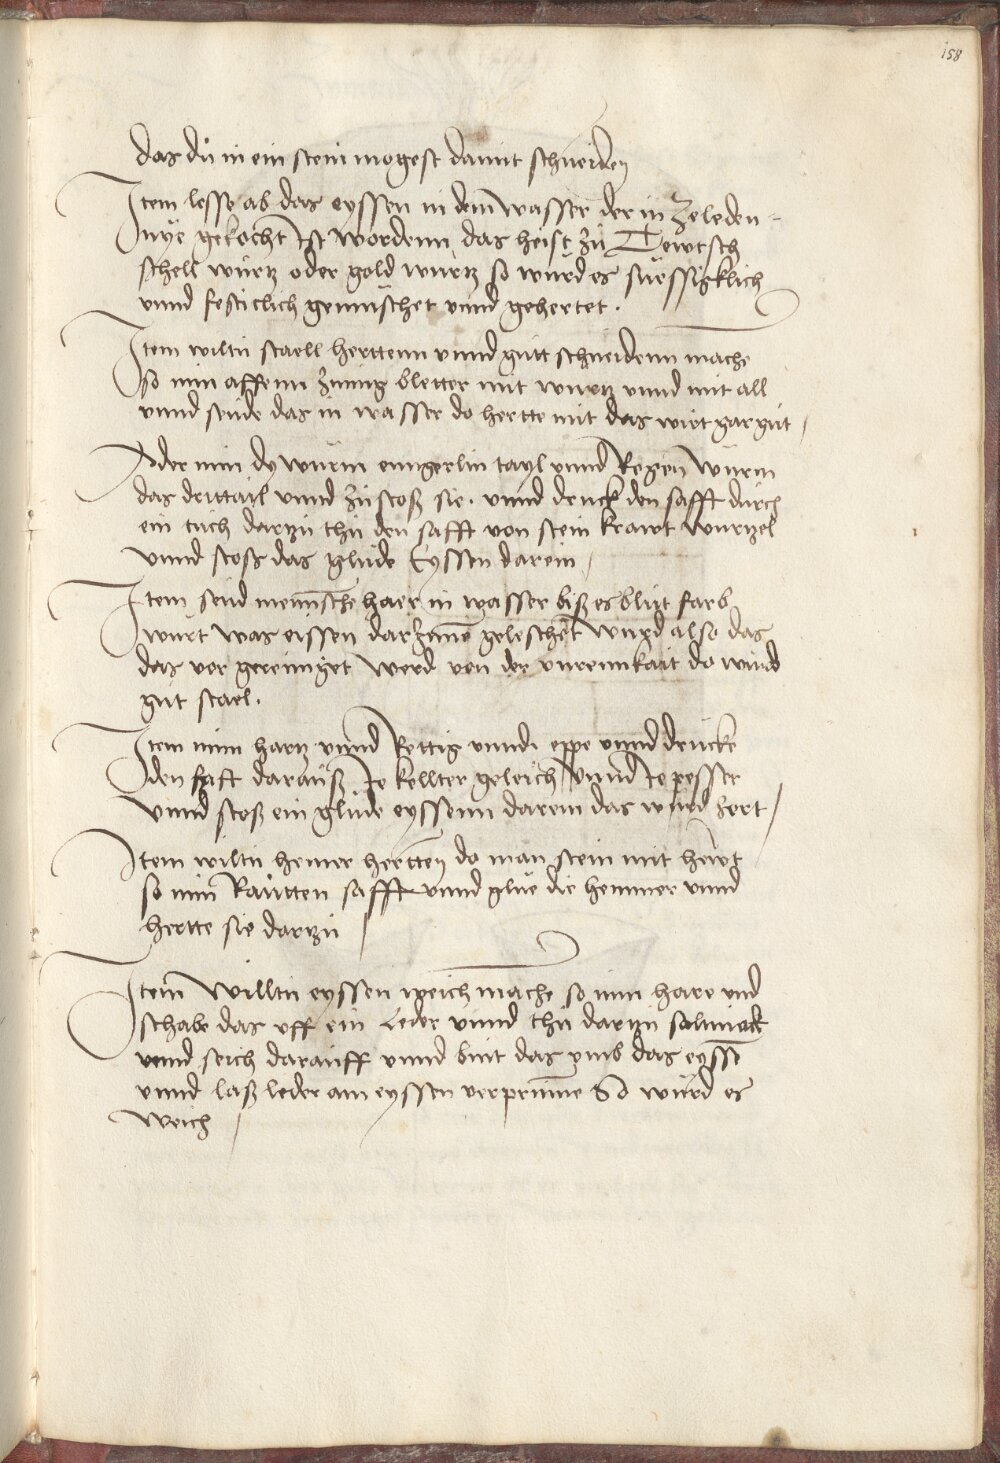 158
das du in ein stein mogest damit schneiden
Item lesse ab das eyssen in dem wasser der in Zeleden-
nye gekocht Ist wordenn das heist zu Tewtsch
schell wurtz oder gold wurtz so wurd es suessigklich
vnnd festiclich gemischet vnnd gehertet.
Item wiltu staell herttenn vnnd gutt schneidenn mache
so nim affenn zung bletter mit wurtz vnnd mit all
vnnd seude das in wasser do hertte mit das wirt gar gut
Oder nim dy wurm enngerlin tayl vnnd Regen wurm
das drittail vnnd zu stoß sie. vnnd druck den safft durch
ein tuch dartzu thu den safft von stein krawt wurtzel
vnnd stoss das glude Eyssen darein
Item seud mennsche haer in wasser biß es blut farb
wurt was eissen dar Inne geleschet wurd also das
das vor gereiniget werd von der vnreinikait do wurd
gut stael.
Item nim hartz vnnd Rettig vnnd eppe vnnd drucke
den saft darauß Je kellter geleich vnnd Je pesser
vnnd stoß ein glude eyssenn darein das wurd hert
Item wiltu hemer hertten do man stein mit hawt
so nim Rautten safft vnnd glue die hemmer vnnd
hertte sie dartzu
Item willtu eyssen weich mache so nim hare vnd
schabe das vff ein Leder vnnd thu dartzu salmiack
vnnd seich darauff vnnd bint das vmb das eysse
vnnd laß leder am eyssen verprinne So wurd es
weich